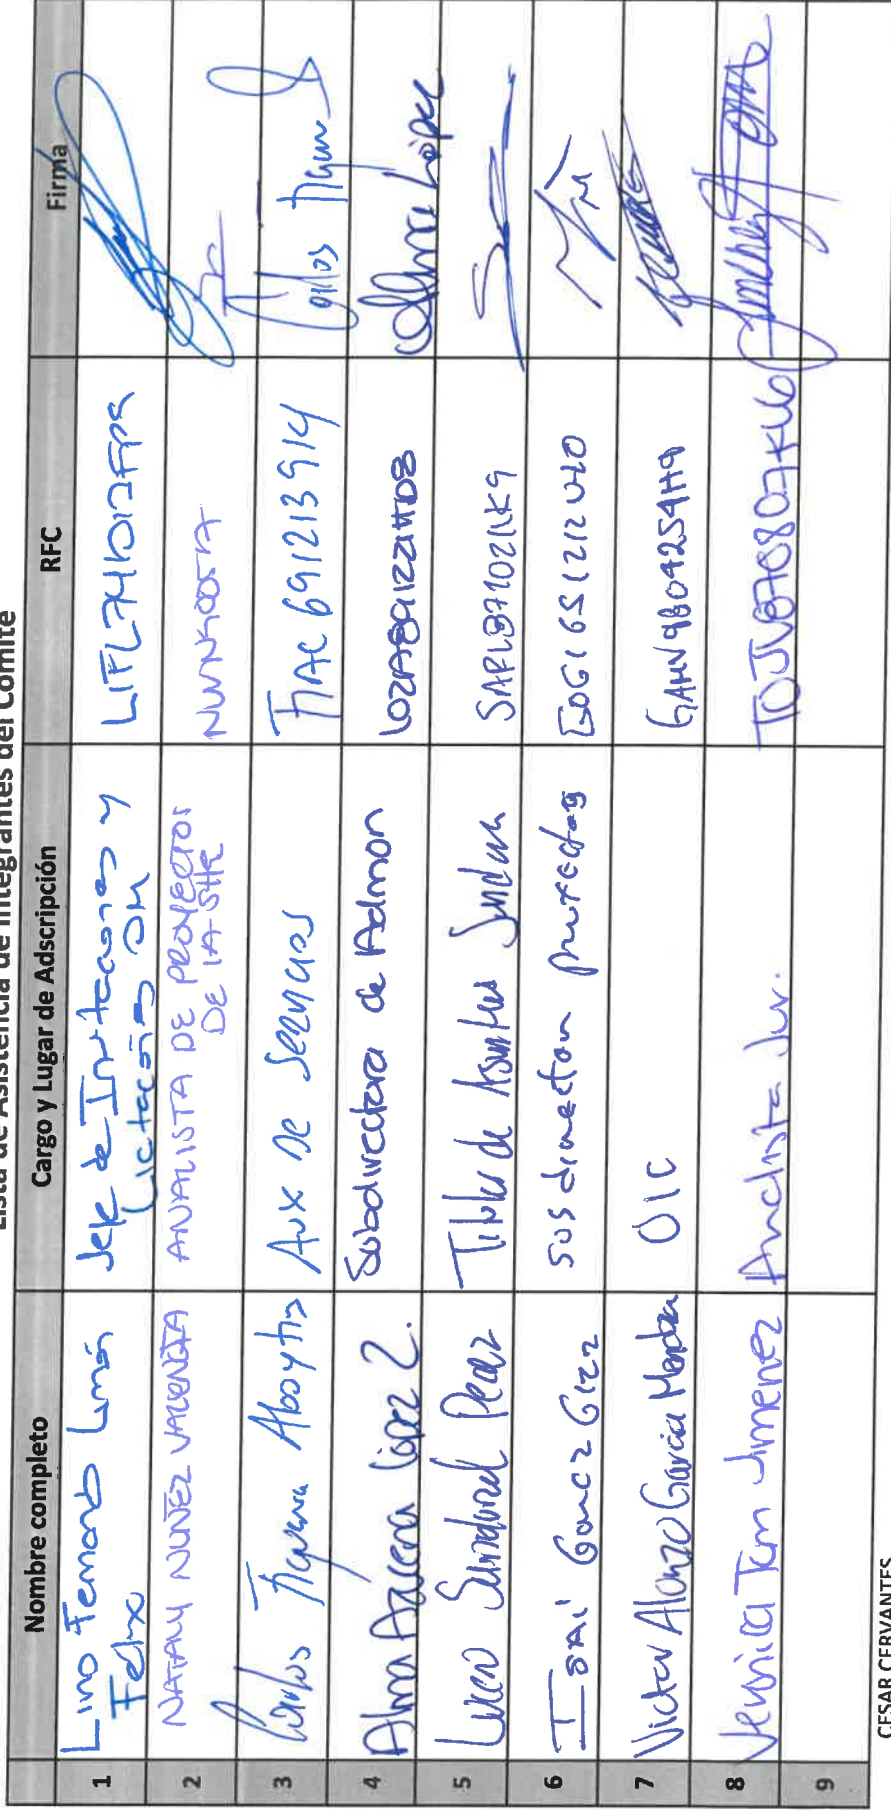 Lista de Asistencia de Integrantes del Comité
Nombre completo Cargo y Lugar de Adscripción RFC Firma
1 Lino Fernando Limón Felix Jefe de Invitaciones y Licitaciones OM
2 NATALY NUÑEZ VALENCIA ANALISTA DE PROYECTOS DE LA SHE
3 Carlos Figueroa Aboytis Aux De Servicios FIAC691213914 Carlos Figueroa
4 Alma Azucena López Z. Subdirectora de Admon LOZA891221 Alma López
5 Sandoval Perez Titular de Asuntos SAPL871021LK9
6 Isai Gomez Glez sus direction proyectos GOGI651212
7 Victor Alonzo García Mendoza OIC GAMV980425
8 Veronica Jimenez Analista Jur. TOJV870807KU6
9
CESAR CERVANTES